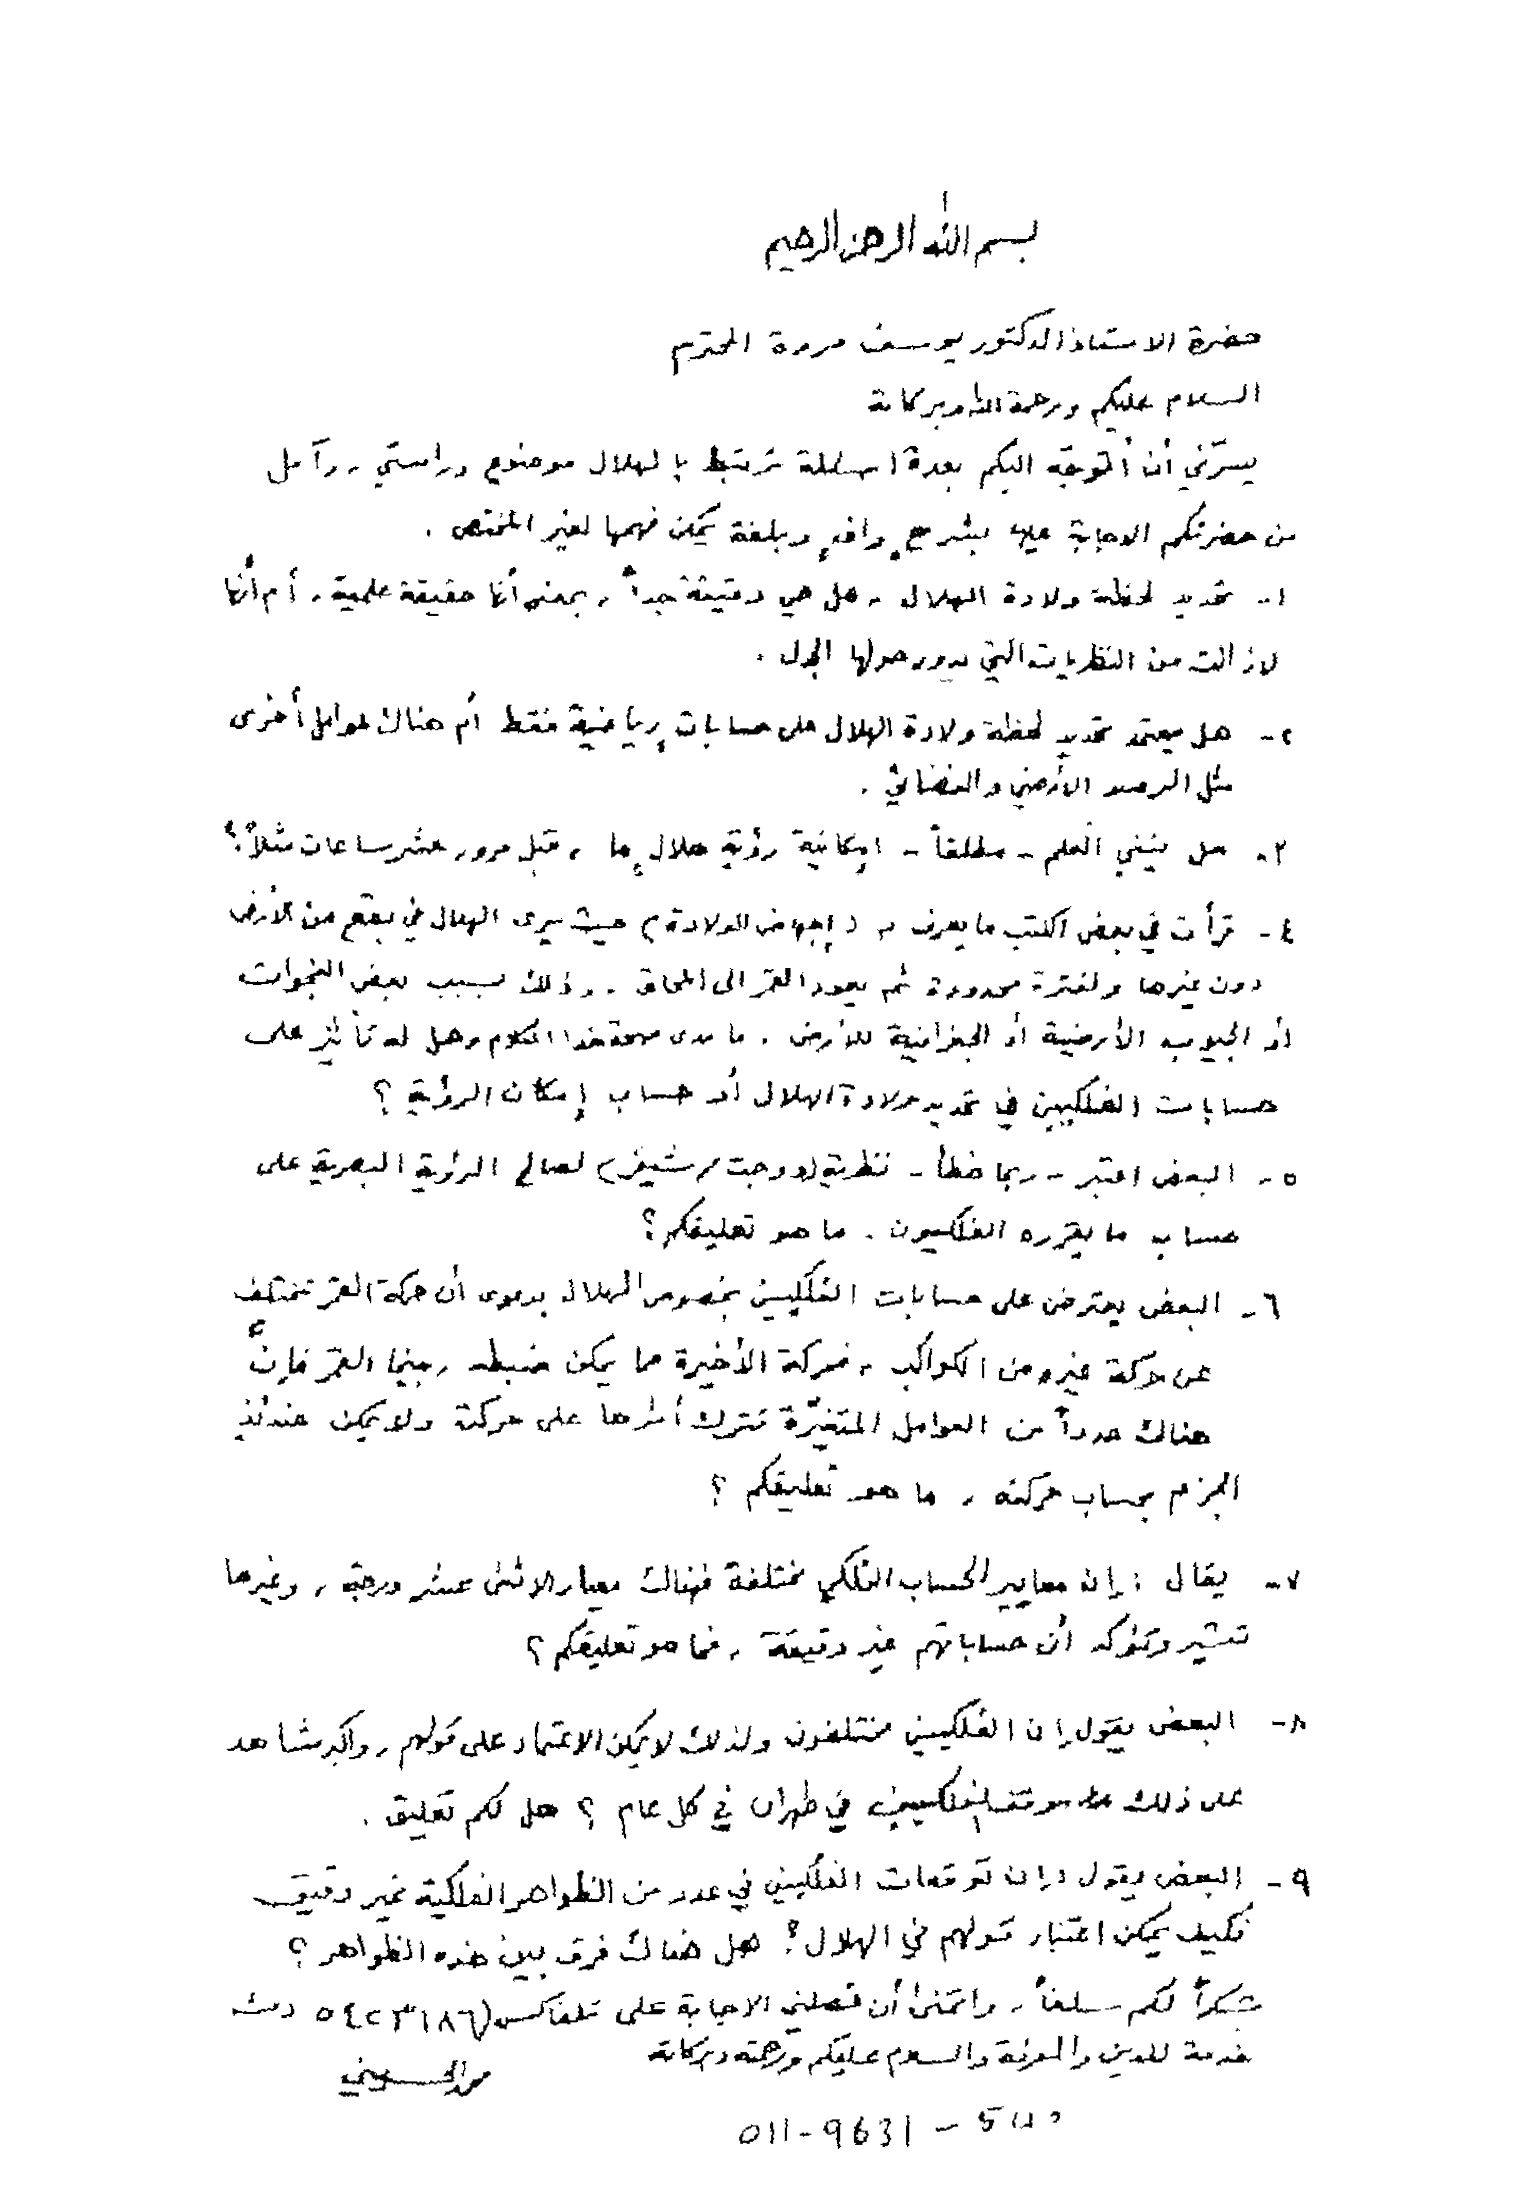 بسم الله الرحمن الرحيم
حضرة الاستاذ الدكتور يوسف مروة المحترم
السلام عليكم ورحمة الله وبركاته
يسرّني أن أتوجّه اليكم بعدة اسئلة ترتبط بالهلال موضوع دراستي، وآمل
من حضرتكم الاجابة عليها بشرحٍ وافٍ وبلغة يمكن فهمها لغير المختص.
١- تحديد لحظة ولادة الهلال، هل هي دقيقة جداً، بمعنى أنها حقيقة علمية، أم أنها
لازالت من النظريات التي يدور حولها الجدل.
٢- هل يعتمد تحديد لحظة ولادة الهلال على حسابات رياضية فقط أم هناك عوامل أخرى
مثل الرصد الأرضي والفضائي.
٣- هل ينفي العلم - مطلقاً - امكانية رؤية هلالٍ ما، قبل مرور عشر ساعات مثلاً؟
٤- قرأت في بعض الكتب ما يعرف بـ (إجهاض الولادة) حيث يرى الهلال في بقع من الأرض
دون غيرها ولفترة محدودة ثم يعود القمر الى المحاق، وذلك بسبب بعض الفجوات
أو الجيوب الأرضية أو الجغرافية للأرض. ما مدى صحة هذا الكلام وهل له تأثير على
حسابات الفلكيين في تحديد ولادة الهلال أو حساب إمكان الرؤية؟
٥- البعض اعتبر - ربما خطأ - نظرية (دوجت / شيفر) لصالح الرؤية البصرية على
حساب ما يقرره الفلكيون. ما هو تعليقكم؟
٦- البعض يعترض على حسابات الفلكيين بخصوص الهلال بدعوى أن حركة القمر تختلف
عن حركة غيره من الكواكب، فحركة الأخيرة مما يمكن ضبطه، بينما القمر فإنّ
هناك عدداً من العوامل المتغيّرة تترك أثرها على حركته ولا يمكن عندئذٍ
الجزم بحساب حركته، ما هو تعليقكم؟
٧- يقال: إن معايير الحساب الفلكي مختلفة فهناك معيار الاثني عشر درجة، وغيرها
تشير وتؤكد أن حساباتهم غير دقيقة، فما هو تعليقكم؟
٨- البعض يقول إن الفلكيين مختلفون ولذلك لا يمكن الاعتماد على قولهم، وأكبر شاهد
على ذلك موقف الفلكيين في طهران في كل عام؟ هل لكم تعليق.
٩- البعض يقول: إن توقعات الفلكيين في عدد من الظواهر الفلكية غير دقيق
فكيف يمكن اعتبار قولهم في الهلال؟ هل هناك فرق بين هذه الظواهر؟
شكراً لكم سلفاً، واتمنى أن تصلني الاجابة على تلفاكس (٥٤٢٣١٨٦) دمتم
خدمة للدين والمعرفة والسلام عليكم ورحمته وبركاته
محمد الحسيني
011-9631-